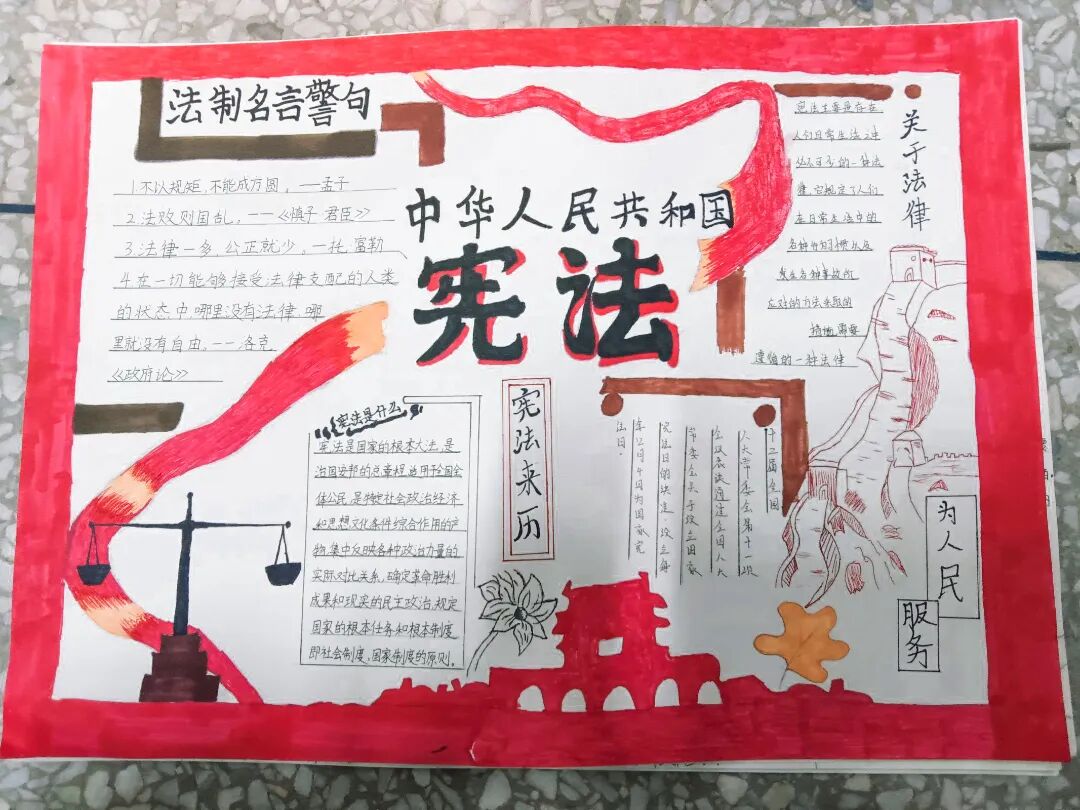 法制名言警句
1.不以规矩,不能成方圆。——孟子
2.法败则国乱。——《慎子 君臣》
3.法律一多,公正就少。—托·富勒
4.在一切能够接受法律支配的人类
的状态中,哪里没有法律,哪
里就没有自由。——洛克
《政府论》
中华人民共和国
宪法
关于法律
宪法主要是存在
人们日常生活之中
必不可少的一种法
律,它规定了人们
在日常生活中的
各种行为习惯以及
发生各种事故所
应对的方法采取的
措施,需要
遵循的一种法律
宪法是什么
宪法是国家的根本大法,是
治国安邦的总章程,适用于全国全
体公民,是特定社会政治经济
和思想文化条件综合作用的产
物,集中反映各种政治力量的
实际对比关系,确定革命胜利
成果和现实的民主政治,规定
国家的根本任务和根本制度
即社会制度、国家制度的原则。
宪法来历
十二届全国
人大常委会第十一次
会议表决通过全国人大
常委会关于设立国家
宪法日的决定,设立每
年12月4日为国家宪
法日。
为人民
服务